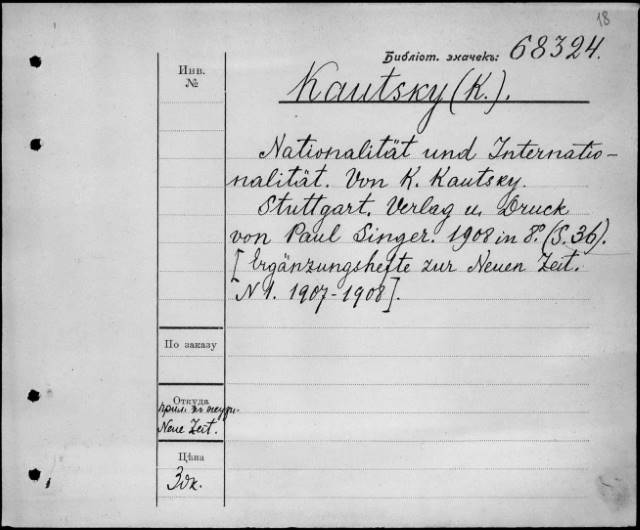 18
Библіот. значекъ: 68324.
Инв.
№
Kautsky (K.).
Nationalität und Internatio-
nalität. Von K. Kautsky.
Stuttgart. Verlag u. Druck
von Paul Singer. 1908 in 8°. (S. 36).
[Ergänzungshefte zur Neuen Zeit.
N 1. 1907-1908].
По заказу
Откуда
прил. къ журн.
Neue Zeit.
Цѣна